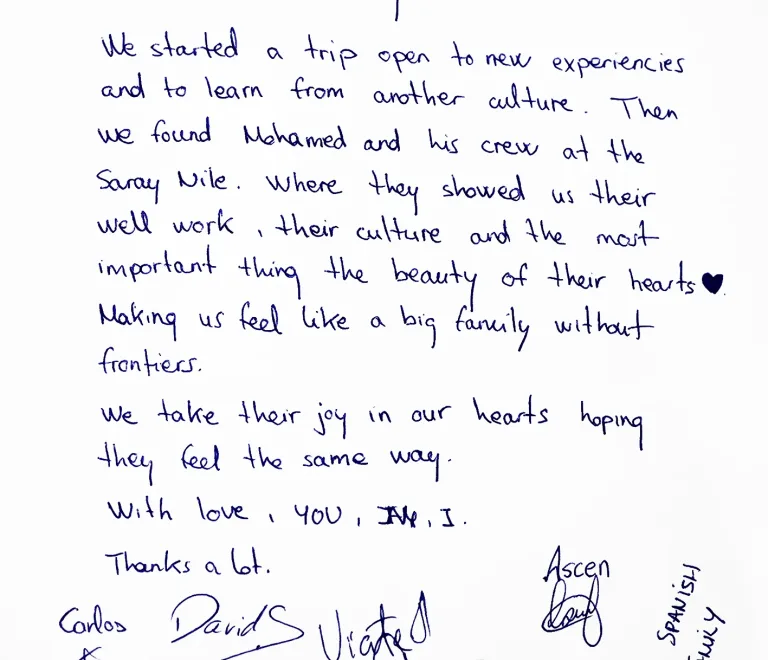 We started a trip open to new experiencies
and to learn from another culture. Then
we found Mohamed and his crew at the
Saray Nile. Where they showed us their
well work, their culture and the most
important thing the beauty of their hearts ♥.
Making us feel like a big family without
frontiers.
We take their joy in our hearts hoping
they feel the same way.
With love, YOU, I.
Thanks a lot.
Ascen
Carlos
David S
SPANISH